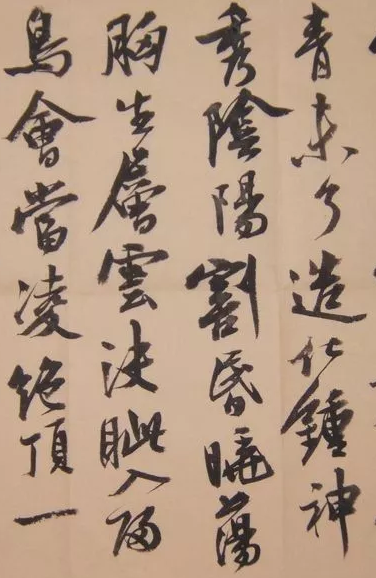 青未了造化鍾神
秀陰陽割昏曉蕩
胸生層雲決眦入歸
鳥會當凌絕頂一